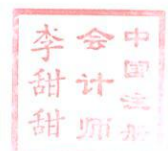 中国注册
会计师
李甜甜